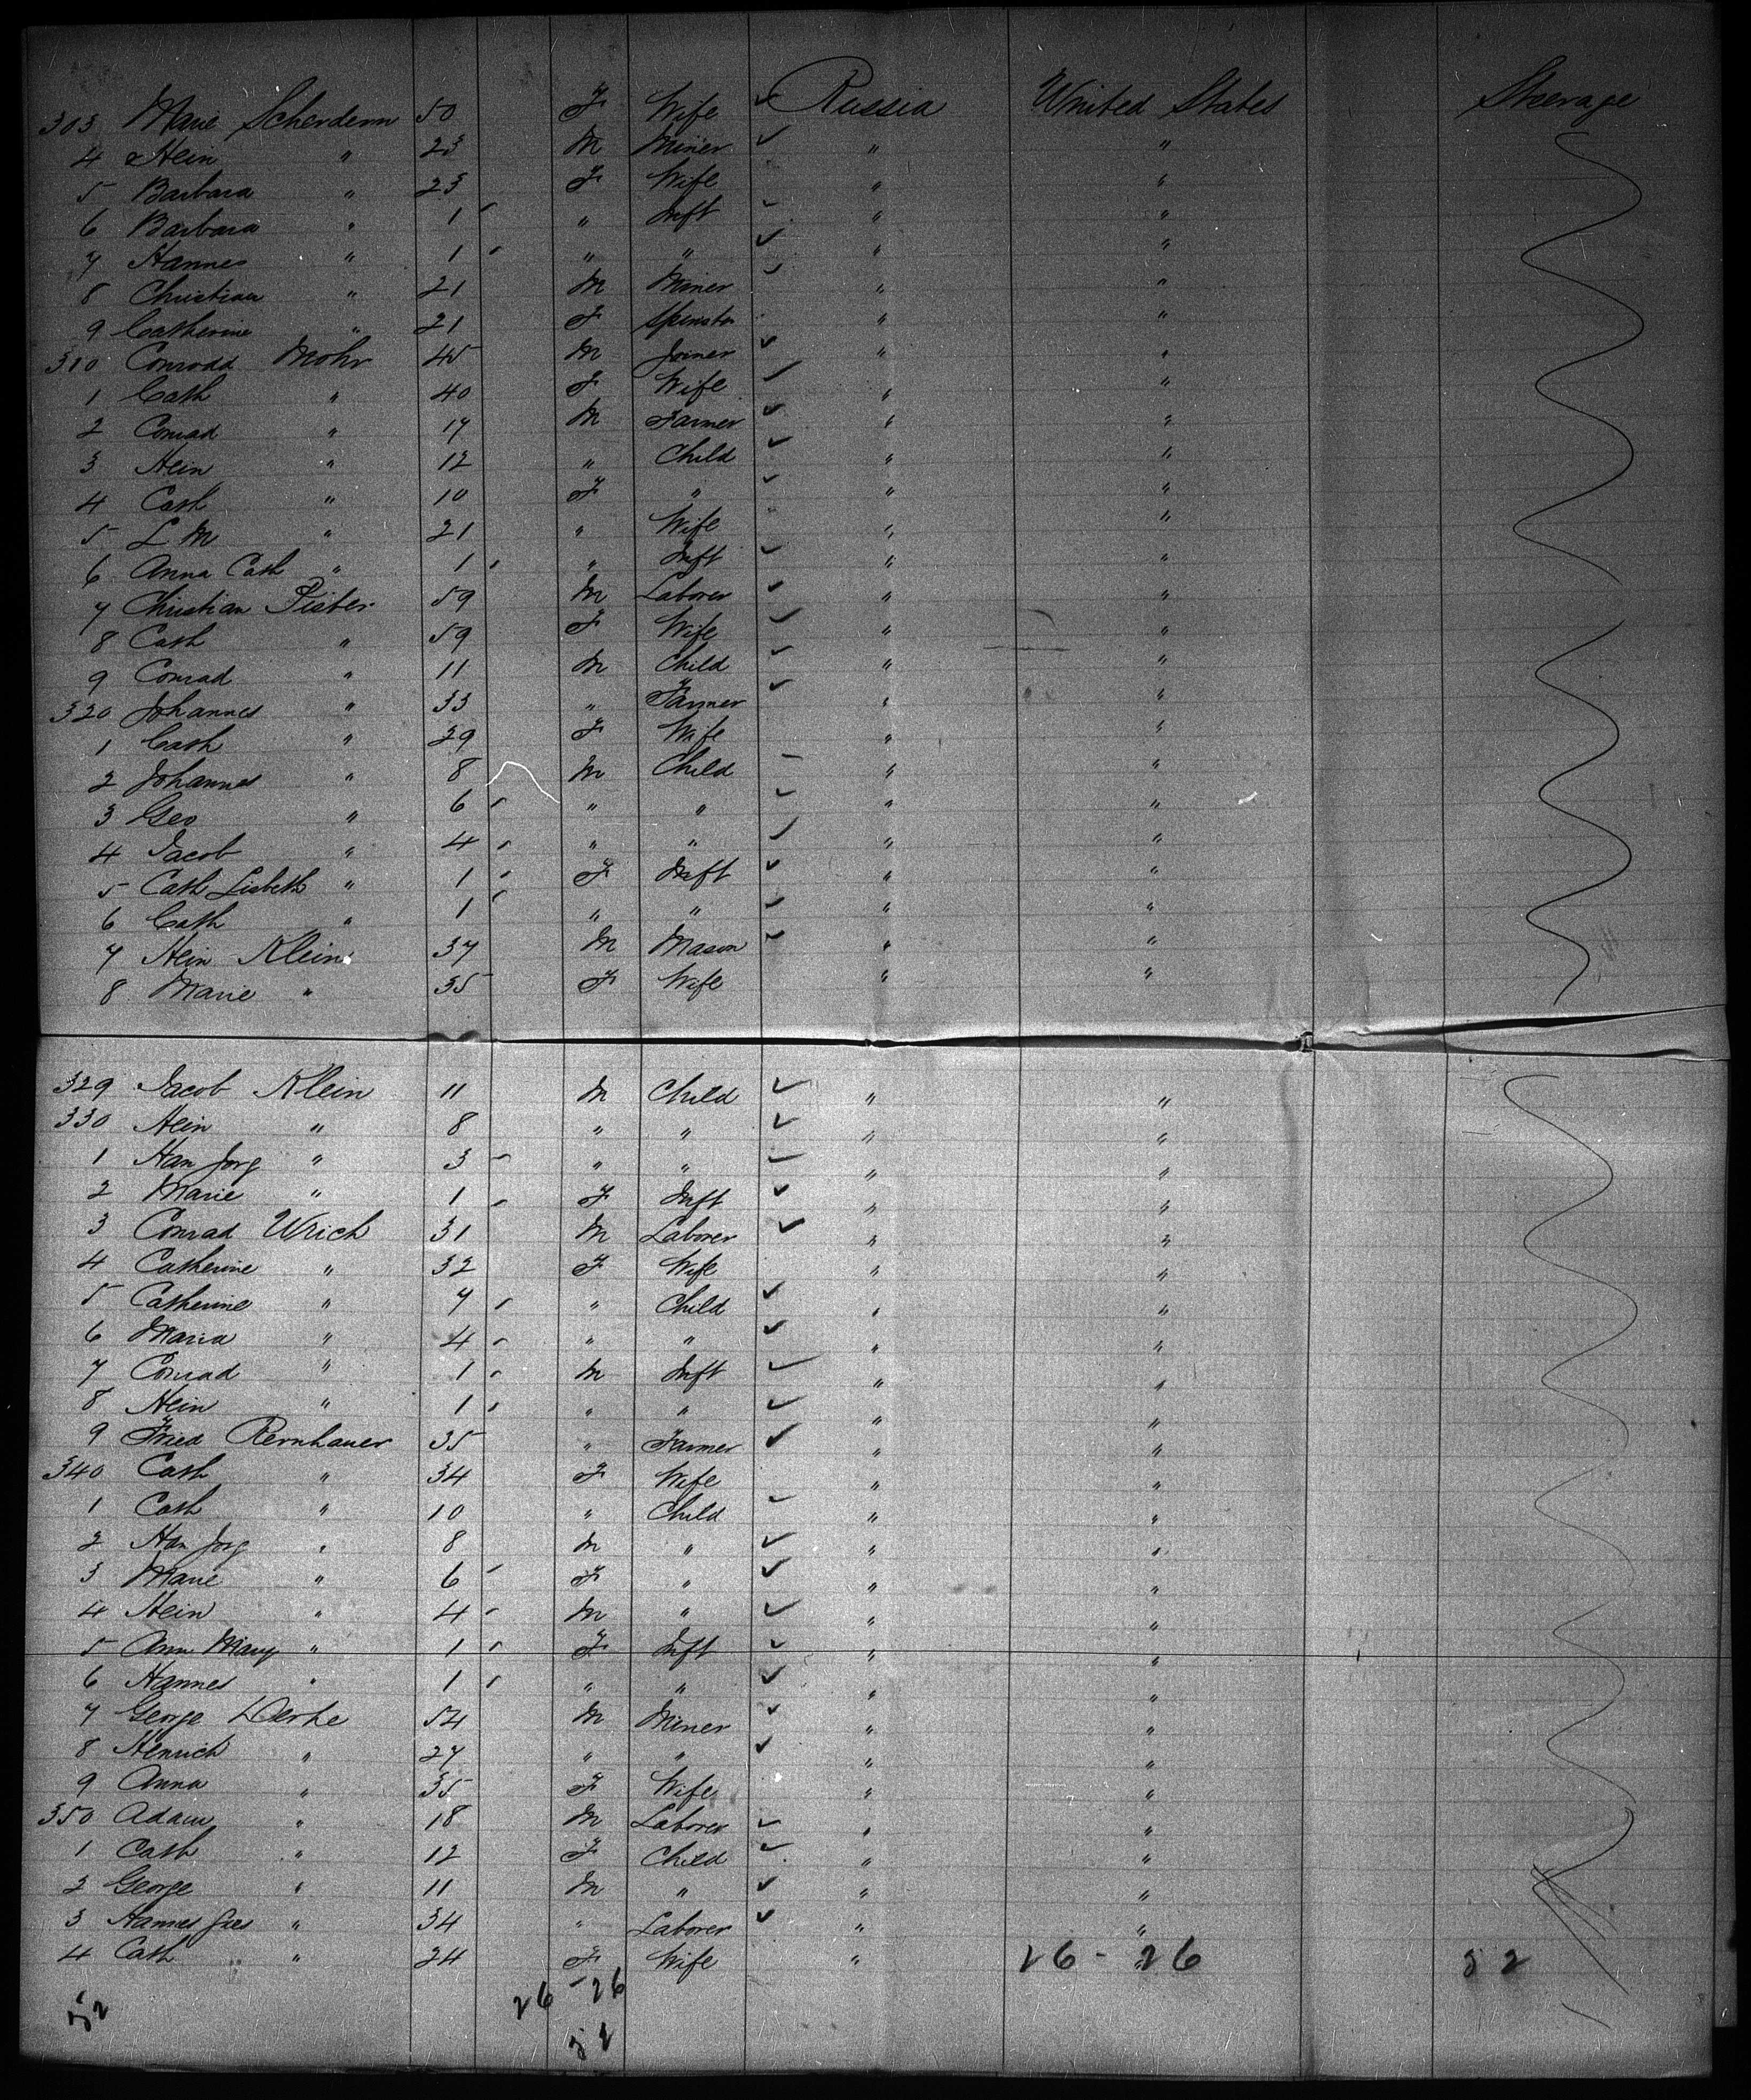 303 Marie Scherderm 50 F Wife ✓ Russia United States Steerage
4 Hein " 23 M Miner ✓ " "
5 Barbara " 23 F Wife " "
6 Barbara " 1 " Inft ✓ " "
7 Hannes " 1 " " ✓ " "
8 Christian " 21 M Miner ✓ " "
9 Catherine " 21 F Spinster " "
310 Conradd Mohr 45 M Joiner ✓ " "
1 Cath " 40 F Wife ✓ " "
2 Conrad " 17 M Farmer ✓ " "
3 Hein " 12 " Child ✓ " "
4 Cath " 10 F " ✓ " "
5 L M " 21 " Wife " "
6 Anna Cath " 1 " Inft ✓ " "
7 Christian Pister 59 M Laborer ✓ " "
8 Cath " 59 F Wife ✓ " "
9 Conrad " 11 M Child ✓ " "
320 Johannes " 33 " Farmer ✓ " "
1 Cath " 29 F Wife " "
2 Johannes " 8 M Child " "
3 Geo " 6 " " ✓ " "
4 Jacob " 4 " " ✓ " "
5 Cath Lisbeth " 1 F Inft ✓ " "
6 Cath " 1 " " ✓ " "
7 Hein Klein 37 M Mason ✓ " "
8 Marie " 35 F Wife " "
329 Jacob Klein 11 M Child ✓ " "
330 Hein " 8 " " ✓ " "
1 Han Jorg " 3 " " ✓ " "
2 Marie " 1 F Inft ✓ " "
3 Conrad Ulrich 31 M Laborer ✓ " "
4 Catherine " 32 F Wife " "
5 Catherine " 7 " Child ✓ " "
6 Maria " 4 " " ✓ " "
7 Conrad " 1 M Inft ✓ " "
8 Hein " 1 " " ✓ " "
9 Fried Kernhauer 35 " Farmer ✓ " "
340 Cath " 34 F Wife " "
1 Cath " 10 " Child ✓ " "
2 Han Jorg " 8 M " ✓ " "
3 Marie " 6 F " ✓ " "
4 Hein " 4 M " ✓ " "
5 Ann Mary " 1 F Inft ✓ " "
6 Hannes " 1 " " ✓ " "
7 George 54 M Miner ✓ " "
8 Henrich " 27 " " ✓ " "
9 Anna " 35 F Wife " "
350 Adam " 18 M Laborer ✓ " "
1 Cath " 12 F Child ✓ " "
2 George " 11 M " ✓ " "
3 Hannes " 34 " Laborer ✓ " "
4 Cath " 24 F Wife " "
26 - 26 52
52 26 - 26
52